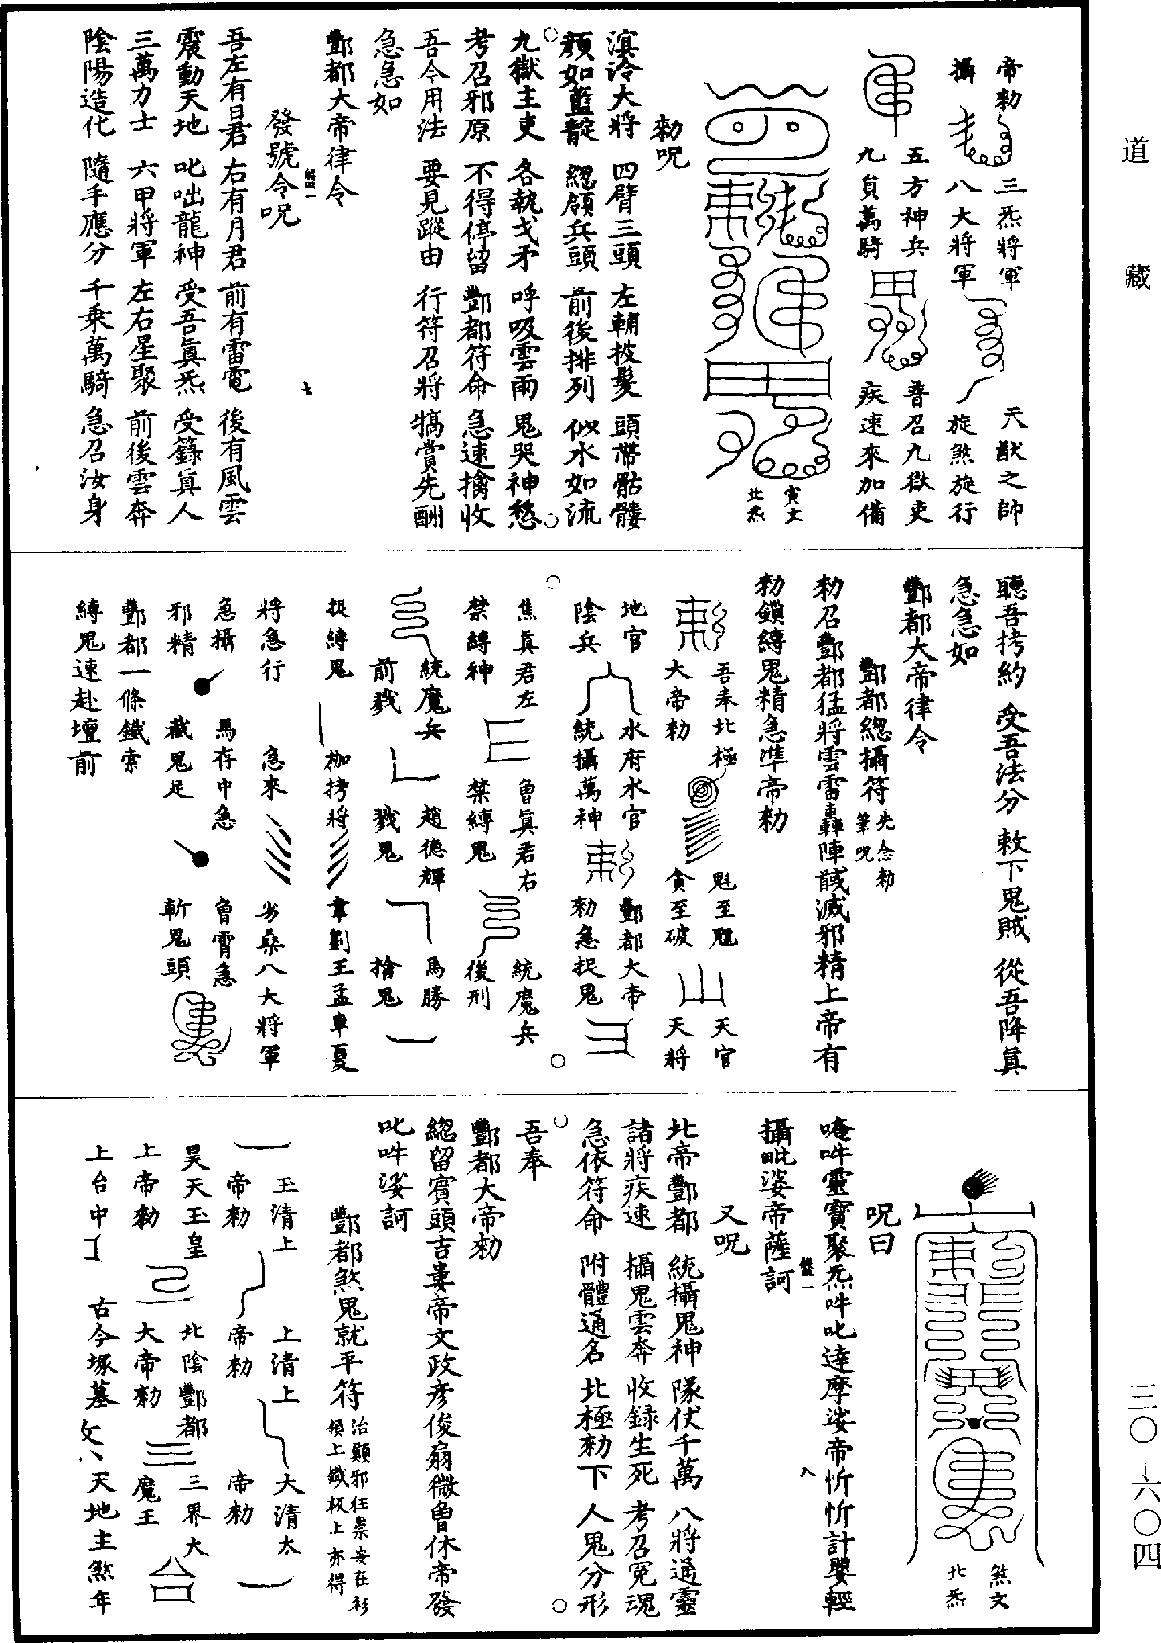 道藏
三〇—六〇四
帝勑 三炁將軍 天猷之帥
攝 八大將軍 旋煞旋行
五方神兵 普召九獄吏
九員萬騎 疾速來加備
寅文
北炁
勑呪
滇泠大將 四臂三頭 左輔披髮 頭帶骷髏
顏如藍靛 總領兵頭 前後排列 似水如流
九獄主吏 各執戈矛 呼吸雲雨 鬼哭神愁
考召邪原 不得停留 酆都符命 急速擒收
吾今用法 要見蹤由 行符召將 犒賞先酬
急急如
酆都大帝律令
發號令呪
吾左有日君 右有月君 前有雷電 後有風雲
震動天地 叱咄龍神 受吾真炁 受籙真人
三萬力士 六甲將軍 左右星聚 前後雲奔
陰陽造化 隨手應分 千乘萬騎 急召汝身
七
聽吾拷約 受吾法分 敕下鬼賊 從吾降真
急急如
酆都大帝律令
酆都總攝符 先念勑筆呪
勑召酆都猛將雲雷轟陣馘滅邪精上帝有
勑鎖縛鬼精急準帝勑
吾奉北極 魁至魒 天官
大帝勑 貪至破 天將
地官 水府水官 酆都大帝
陰兵 統攝萬神 勑急捉鬼
焦真君左 魯真君右 統魔兵
禁縛神 禁縛鬼 後刑
統魔兵 趙德輝 馬勝
前戮 戮鬼 擒鬼
捉縛鬼 枷拷將 韋劉王孟車夏
將急行 急來 出桑八大將軍
急攝 馬存中急 魯霄急
邪精 截鬼足 斬鬼頭
酆都一條鐵索
縛鬼速赴壇前
煞文
北炁
呪曰
唵吽靈寶聚炁吽叱達摩娑帝忻忻計嬰輕
攝毗娑帝薩訶
又呪
北帝酆都 統攝鬼神 隊仗千萬 八將通靈
諸將疾速 攝鬼雲奔 收錄生死 考召冤魂
急依符命 附體通名 北極勑下 人鬼分形
吾奉
酆都大帝勑
總留賓頭吉婁帝文政彥俊扇微魯休帝發
叱吽娑訶
八
酆都煞鬼就平符 治顛邪狂祟安在衫領上鐵板上亦得
玉清上 上清上 太清太
帝勑 帝勑 帝勑
昊天玉皇 北陰酆都 三界大
上帝勑 大帝勑 魔王
上台中 古今塚墓 天地主煞年